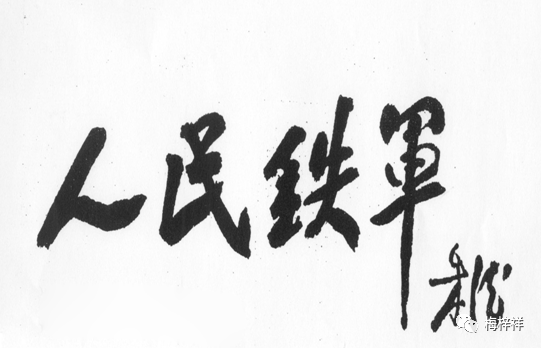 人民鉄軍
梅梓祥